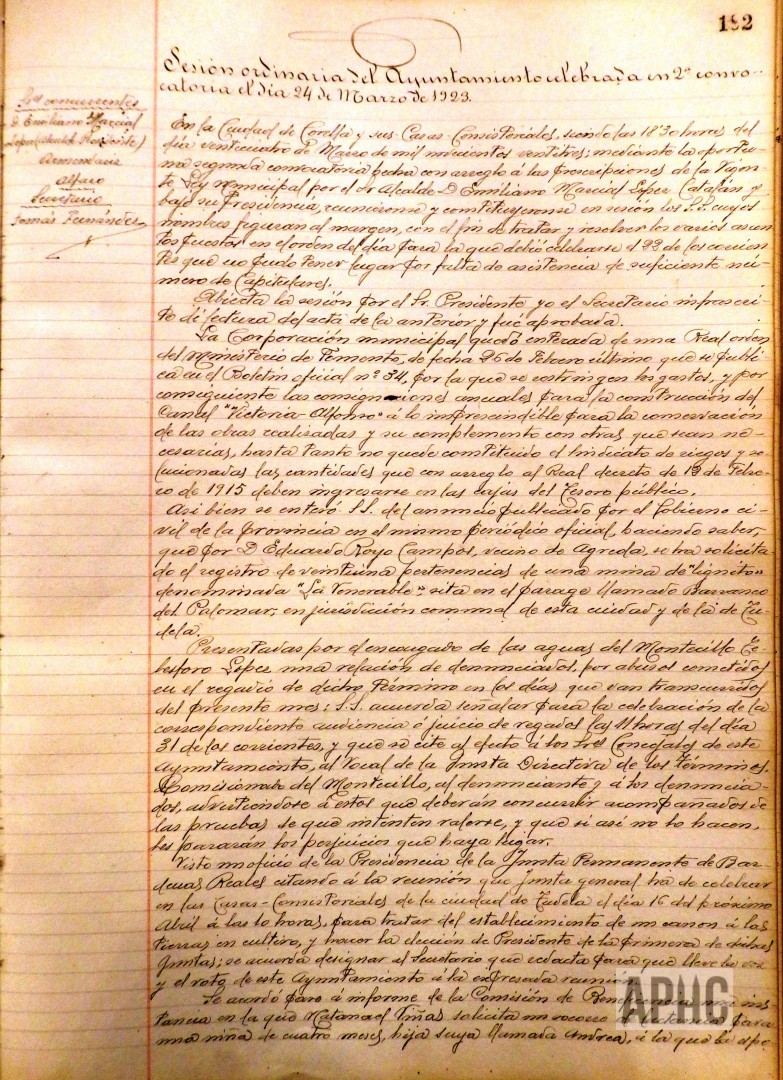 182
Sesión ordinaria del Ayuntamiento celebrada en 2ª convo-
catoria el día 24 de Marzo de 1923.
Sres concurrentes
D. Emiliano Marcial
López (Alcalde Presidente)
Armendáriz
Alfaro
Secretario
Tomás Fernández
En la Ciudad de Corella y sus Casas-Consistoriales, siendo las 18'30 horas del
día venticuatro de Marzo de mil novecientos ventitres; mediante la oportu-
na segunda convocatoria hecha con arreglo á las prescripciones de la vigen-
te Ley municipal por el Sr Alcalde D Emiliano Marcial López Catalán y
bajo su presidencia, reunieronse y constituyeronse en sesión los S.S. cuyos
nombres figuran al margen, con el fin de tratar y resolver los varios asun-
tos puestos en el orden del día para la que debió celebrarse el 22 de los corrien-
tes que no pudo tener lugar por falta de asistencia de suficiente nú-
mero de Capitulares.
Abierta la sesión por el Sr. Presidente, yo el Secretario infrascri-
to di lectura del acta de la anterior y fué aprobada.
La Corporación municipal quedó enterada de una Real orden
del Ministerio de Fomento, de fecha 26 de Febrero último que se publi-
ca en el Boletín oficial nº 34, por la que se restringen los gastos, y por
consiguiente las consignaciones anuales para la construcción del
Canal "Victoria-Alfonso" á lo imprescindible para la conservación
de las obras realizadas y su complemento con otras que sean ne-
cesarias, hasta tanto no quede constituido el Sindicato de riegos y so-
lucionadas las cantidades que con arreglo al Real decreto de 12 de Febre-
ro de 1915 deben ingresarse en las cajas del Tesoro público.
Asi bien se enteró S.S. del anuncio publicado por el Gobierno ci-
vil de la provincia en el mismo periódico oficial, haciendo saber,
que por D Eduardo Royo Campos, vecino de Agreda, se ha solicita-
do el registro de veintiuna pertenencias de una mina de "lignito"
denominada "La Venerable" sita en el parage llamado Barranco
del Palomar, en jurisdicción comunal de esta ciudad y de la de Tu-
dela.
Presentadas por el encargado de las aguas del Montecillo Te-
lesforo López una relación de denunciados, por abusos cometidos
en el regadío de dicho término en los días que van transcurridos
del presente mes; S.S. acuerda señalar para la celebración de la
correspondiente audiencia ó juicio de regados las 11 horas del día
31 de los corrientes, y que se cite al efecto á los Sres Concejales de este
Ayuntamiento, al Vocal de la Junta Directiva de los términos,
Comisionado del Montecillo, al denunciante y á los denuncia-
dos, advirtiéndose á estos que deberán concurrir acompañados de
las pruebas de que intenten valerse, y que si asi no lo hacen,
les pararán los perjuicios que haya lugar.
Visto un oficio de la Presidencia de la Junta Permanente de Bar-
denas Reales citando á la reunión que Junta general ha de celebrar
en las Casas-Consistoriales de la ciudad de Tudela el día 16 del próximo
Abril á las 10 horas, para tratar del establecimiento de un canon á las
tierras en cultivo, y hacer la elección de Presidente de la primera de dichas
Juntas; se acuerda designar al Secretario que redacta para que lleve la voz
y el voto de este Ayuntamiento á la expresada reunión
Se acordó pase á informe de la Comisión de Beneficencia una ins-
tancia en la que Natanael Viñas solicita un socorro de lactancia para
una niña de cuatro meses, hija suya llamada Andrea, á la que la espo-
APHC